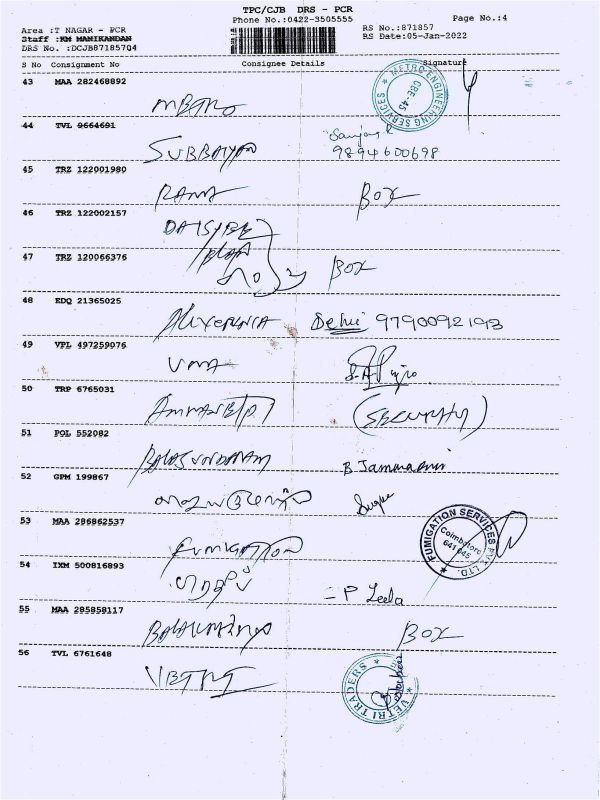 TPC/CJB DRS - PCR
Phone No.:0422-3505555
Page No.:4
Area :T NAGAR - PCR
RS No.:871857
Staff :KM MANIKANDAN
RS Date:05-Jan-2022
DRS No. :DCJB871857Q4
S No Consignment No Consignee Details Signature
43 MAA 282468892
METRO ENGINEERING SERVICES
CBE-45
METRO
44 TVL 9664691
SUBBAIYAN
9894600698
45 TRZ 122001980
RAMA BOX
46 TRZ 122002157
47 TRZ 120066376
BOX
48 EDQ 21365025
9790092193
49 VPL 497259076
UMA
50 TRP 6765031
(SECURITY)
51 POL 552082
BALASUNDARAM
52 GPM 199867
53 MAA 286862537
FUMIGATION
FUMIGATION SERVICES PVT. LTD.
Coimbatore
641 045
54 IXM 500816893
P Leela
55 MAA 285858117
BOX
56 TVL 6761648
VETRI
VETRI TRADERS